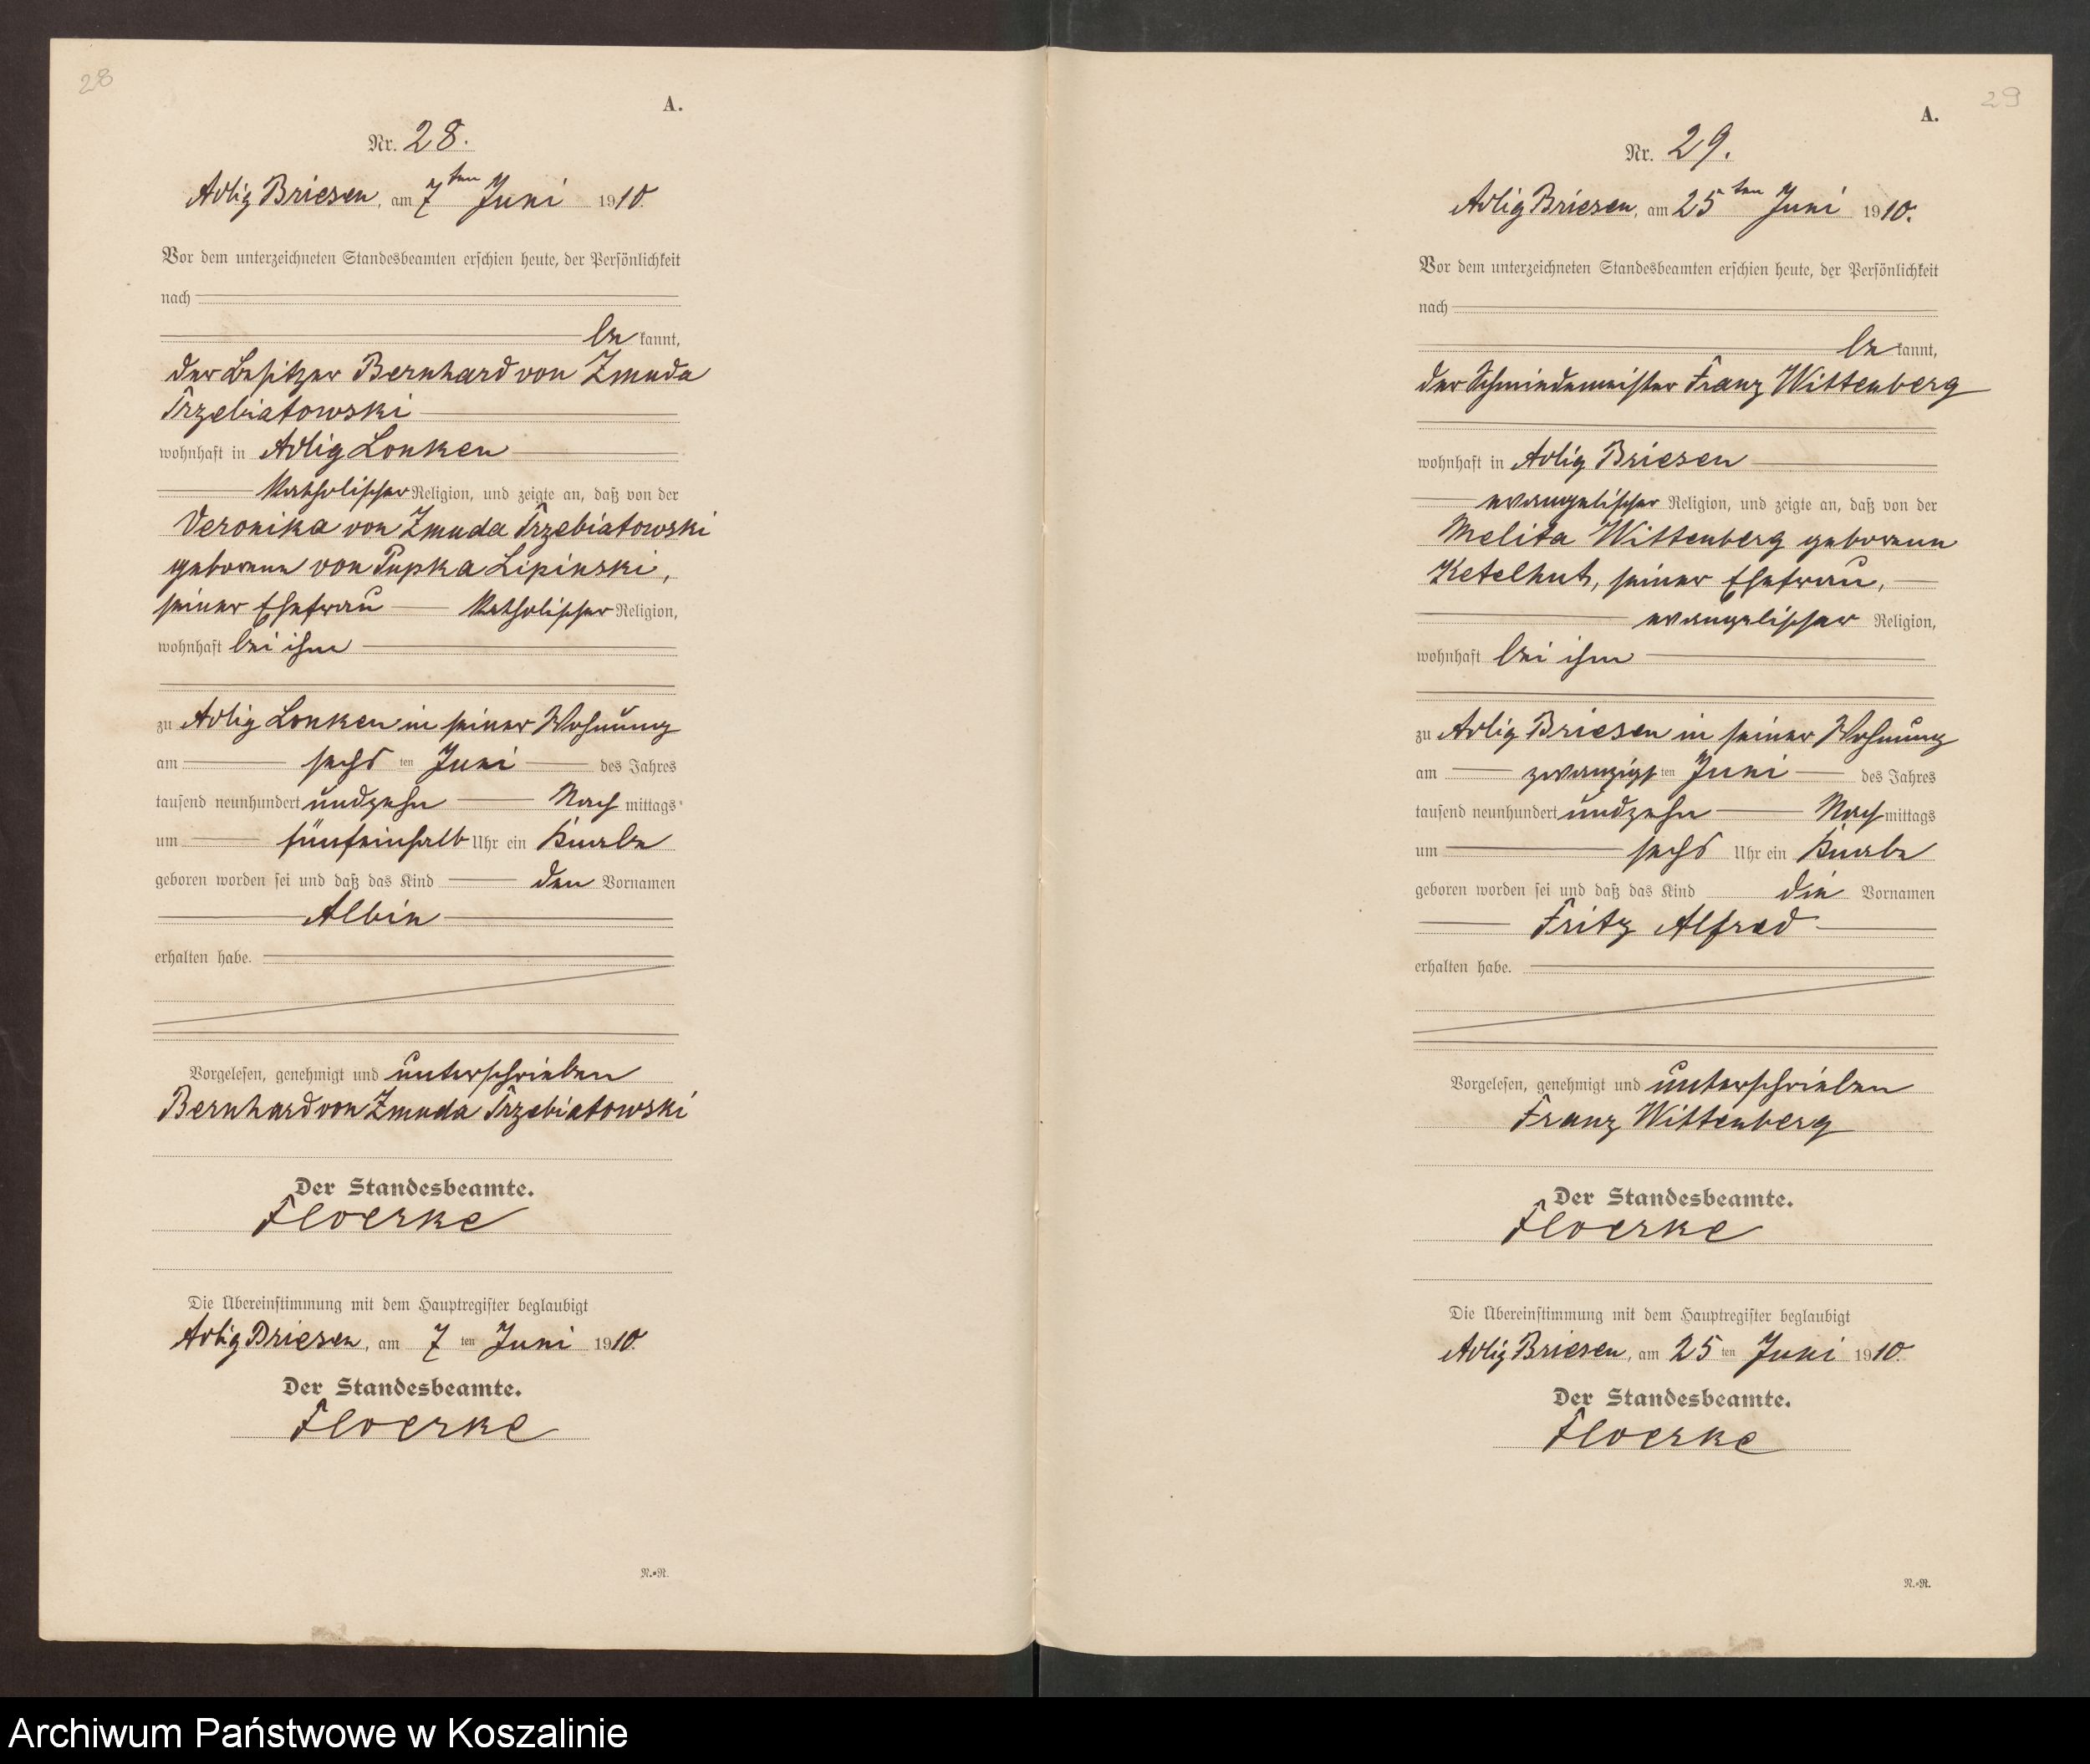 28
A.
Nr. 28.
Adlig Briesen, am 7ten Juni 1910.
Vor dem unterzeichneten Standesbeamten erschien heute, der Persönlichkeit
nach
be kannt,
der Besitzer Bernhard von Zmuda
Trzebiatowski
wohnhaft in Adlig Lonken
katholischer Religion, und zeigte an, daß von der
Veronika von Zmuda Trzebiatowski
geborene von Pupka Lipinski,
seiner Ehefrau katholischer Religion,
wohnhaft bei ihm
zu Adlig Lonken in seiner Wohnung
am sechs ten Juni des Jahres
tausend neunhundert undzehn Nach mittags
um fünfeinhalb Uhr ein Knabe
geboren worden sei und daß das Kind den Vornamen
Albin
erhalten habe.
Vorgelesen, genehmigt und unterschrieben
Bernhard von Zmuda Trzebiatowski
Der Standesbeamte.
Floerke
Die Übereinstimmung mit dem Hauptregister beglaubigt
Adlig Briesen, am 7 ten Juni 1910.
Der Standesbeamte.
Floerke
N.-R.
29
A.
Nr. 29.
Adlig Briesen, am 25ten Juni 1910.
Vor dem unterzeichneten Standesbeamten erschien heute, der Persönlichkeit
nach
be kannt,
der Schmiedemeister Franz Wittenberg
wohnhaft in Adlig Briesen
evangelischer Religion, und zeigte an, daß von der
Melita Wittenberg geborene
Ketelhut, seiner Ehefrau,
evangelischer Religion,
wohnhaft bei ihm
zu Adlig Briesen in seiner Wohnung
am zwanzigs ten Juni des Jahres
tausend neunhundert undzehn Nach mittags
um sechs Uhr ein Knabe
geboren worden sei und daß das Kind die Vornamen
Fritz Alfred
erhalten habe.
Vorgelesen, genehmigt und unterschrieben
Franz Wittenberg
Der Standesbeamte.
Floerke
Die Übereinstimmung mit dem Hauptregister beglaubigt
Adlig Briesen, am 25 ten Juni 1910.
Der Standesbeamte.
Floerke
N.-R.
Archiwum Państwowe w Koszalinie